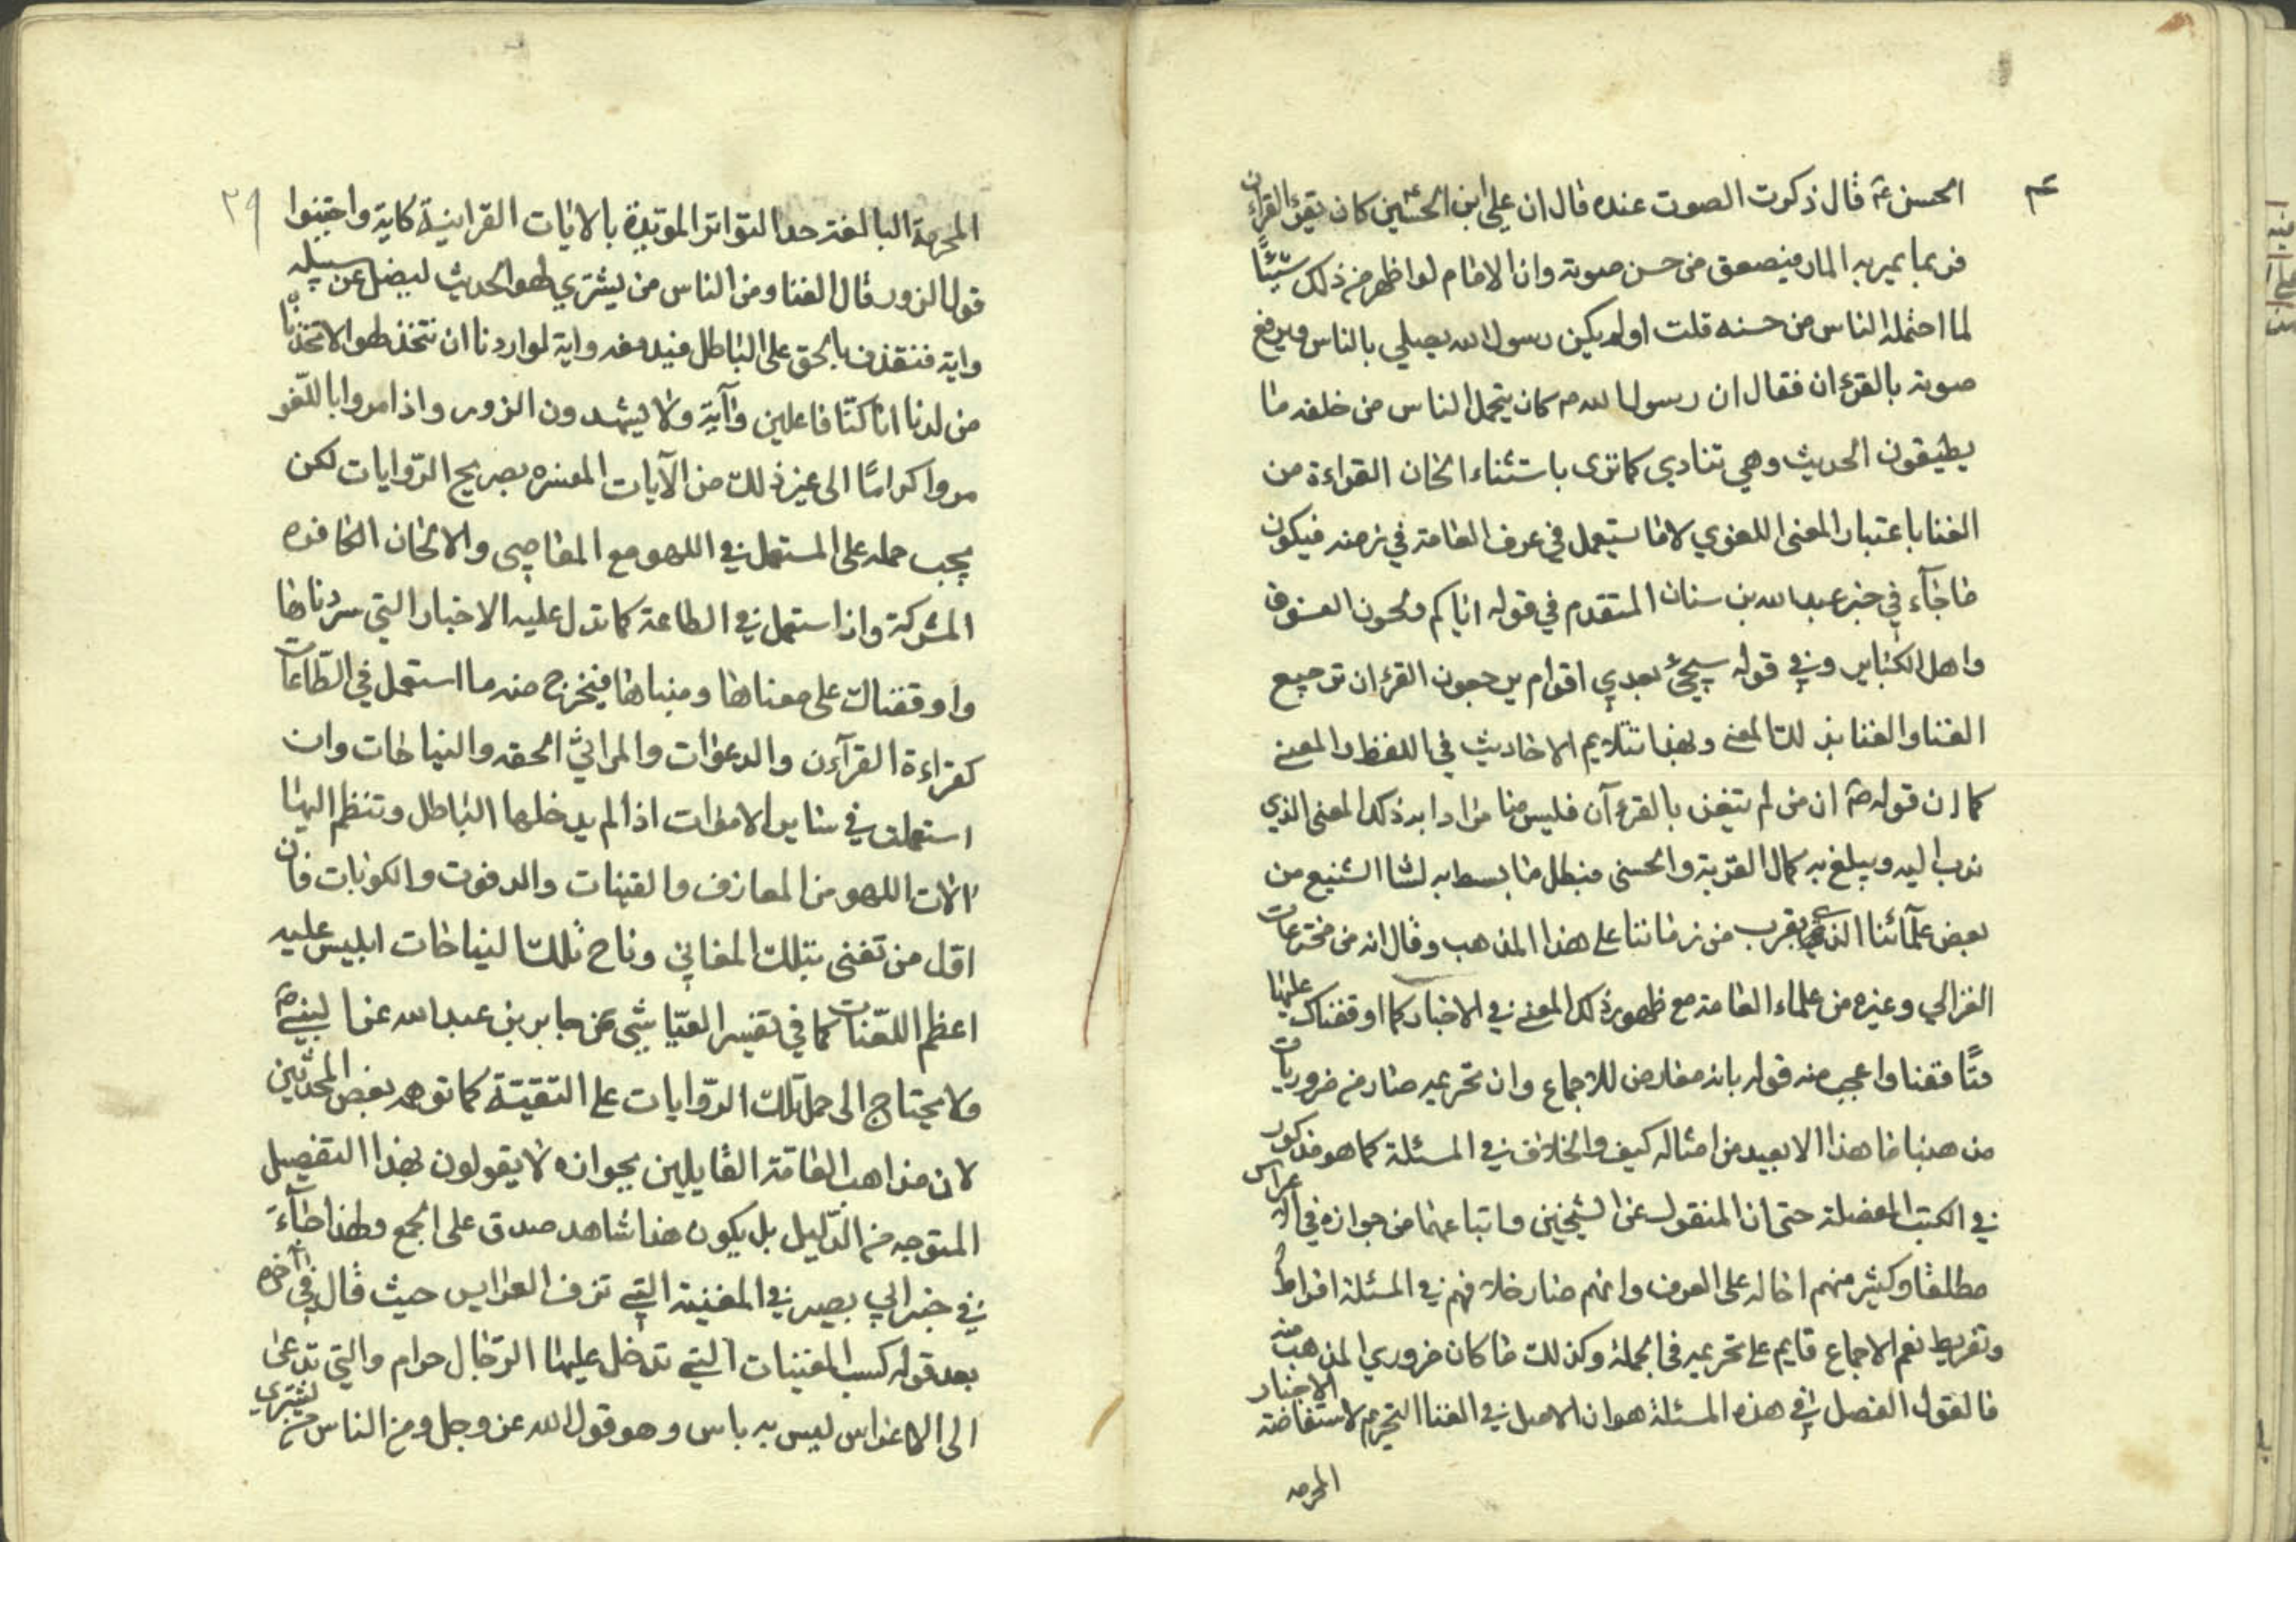 الحسن ع قال ذكرت الصوت عنده قال ان علي ابن الحسين ع كان يقرئ القران
فربما يمر به المار فيصعق من حسن صوته وان الامام لو اظهر من ذلك شيئًا
لما احتمله الناس من حسنه قلت اولم يكن رسول الله يصلي بالناس ويرفع
صوته بالقرءان فقال ان رسول الله ص كان يتحمل الناس من خلفه ما
يطيقون الحديث وهي تنادي كما ترى باستثناء الحان القراءة من
الغنا باعتبار المعنى اللغوي لا ما يستعمل في عرف العامة في زمنه فيكون
ما جآء في خبر عبد الله بن سنان المتقدم في قوله اياكم ولحون الفسوق
واهل الكبائر وفي قوله سيجئ بعدي اقوام يرجعون القرءان ترجيع
الغنا والغنا بذلك المعنى وبهذا تتلايم الاحاديث في اللفظ والمعنى
كما ان قوله ص ان من لم يتغن بالقرءآن فليس منا مرادا به ذلك المعنى الذي
ندب اليه ويبلغ به كمال القربة والحسنى فبطل ما بسط به لسا الشنيع من
بعض علمآئنا الذي يقرب من زماننا على هذا المذهب وقال انه من مخترعات
الغزالي وغيره من علماء العامة مع ظهور ذلك المعنى في الاخبار كما اوقفناك عليها
متًا فقنا واعجب منه قوله بانه معارض للاجماع وان تحريمه صار من ضروريات
مذهبنا فما هذا الا بعيد من امثاله كيف والخلاف في المسئلة كما هو مذكور
في الكتب المفصلة حتى ان المنقول عن الشيخين واتباعهما من جوازه في الاعراس
مطلقا وكثير منهم احاله على العرف وانهم صار خلافهم في المسئلة افراط
وتفريط نعم الاجماع قايم على تحريمه في الجملة وكذلك ما كان ضروري المذهب منه
فالقول الفصل في هذه المسئلة هو ان الاصل في الغنا التحريم لاستفاضة الاخبار
المحرمه
٢٩
المحرمة البالغة حد التواتر المويدة بالايات القراينية كاية واجتنبوا
قول الزور قال الغنا ومن الناس من يشتري لهو الحديث ليضل عن سبيله
واية فنقذف بالحق على الباطل فيدمغه واية لو اردنا ان نتخذ لهوا لاتخذناه
من لدنا ان كنّا فاعلين وآية ولا يشهدون الزور واذا مروا باللّغو
مروا كرامًا الى غير ذلك من الآيات المفسره بصريح الرّوايات لكن
يجب حمله على المستعمل في اللهو مع المعاصي والالحان
المشركة واذا استعمل في الطاعة كما تدل عليه الاخبار التي سردناها
واوقفناك على معناها ومبناها فيخرج منه ما استعمل في الطّاعات
كقراءة القرآن والدعوات والمراثي الحقه والنياحات وان
استعملت في ساير الاموات اذا لم يدخلها الباطل وتنظم اليها
الات اللهو من المعازف والقينات والدفوف والكوبات فان
اول من تغنى بتلك المغاني وناح تلك النياحات ابليس عليه
اعظم اللّعنات كما في تفسير العيّاشي عن جابر بن عبد الله عن النبي ص
ولا يحتاج الى حمل تلك الرّوايات على التقيّة كما توهمه بعض المحدّثين
لان مذاهب العامّة القايلين بجوازه لا يقولون بهذا التفصيل
المتوجه من الدّليل بل يكون هنا شاهد صدق على الجمع ولهذا جآء
في خبر ابي بصير في المغنية التي تزف العرايس حيث قال في آخره
بعد قوله كسب المغنيات التي تدخل عليها الرّجال حرام والتي تدعى
الى الاعراس ليس به باس وهو قول الله عز وجل ومن الناس من يشتري